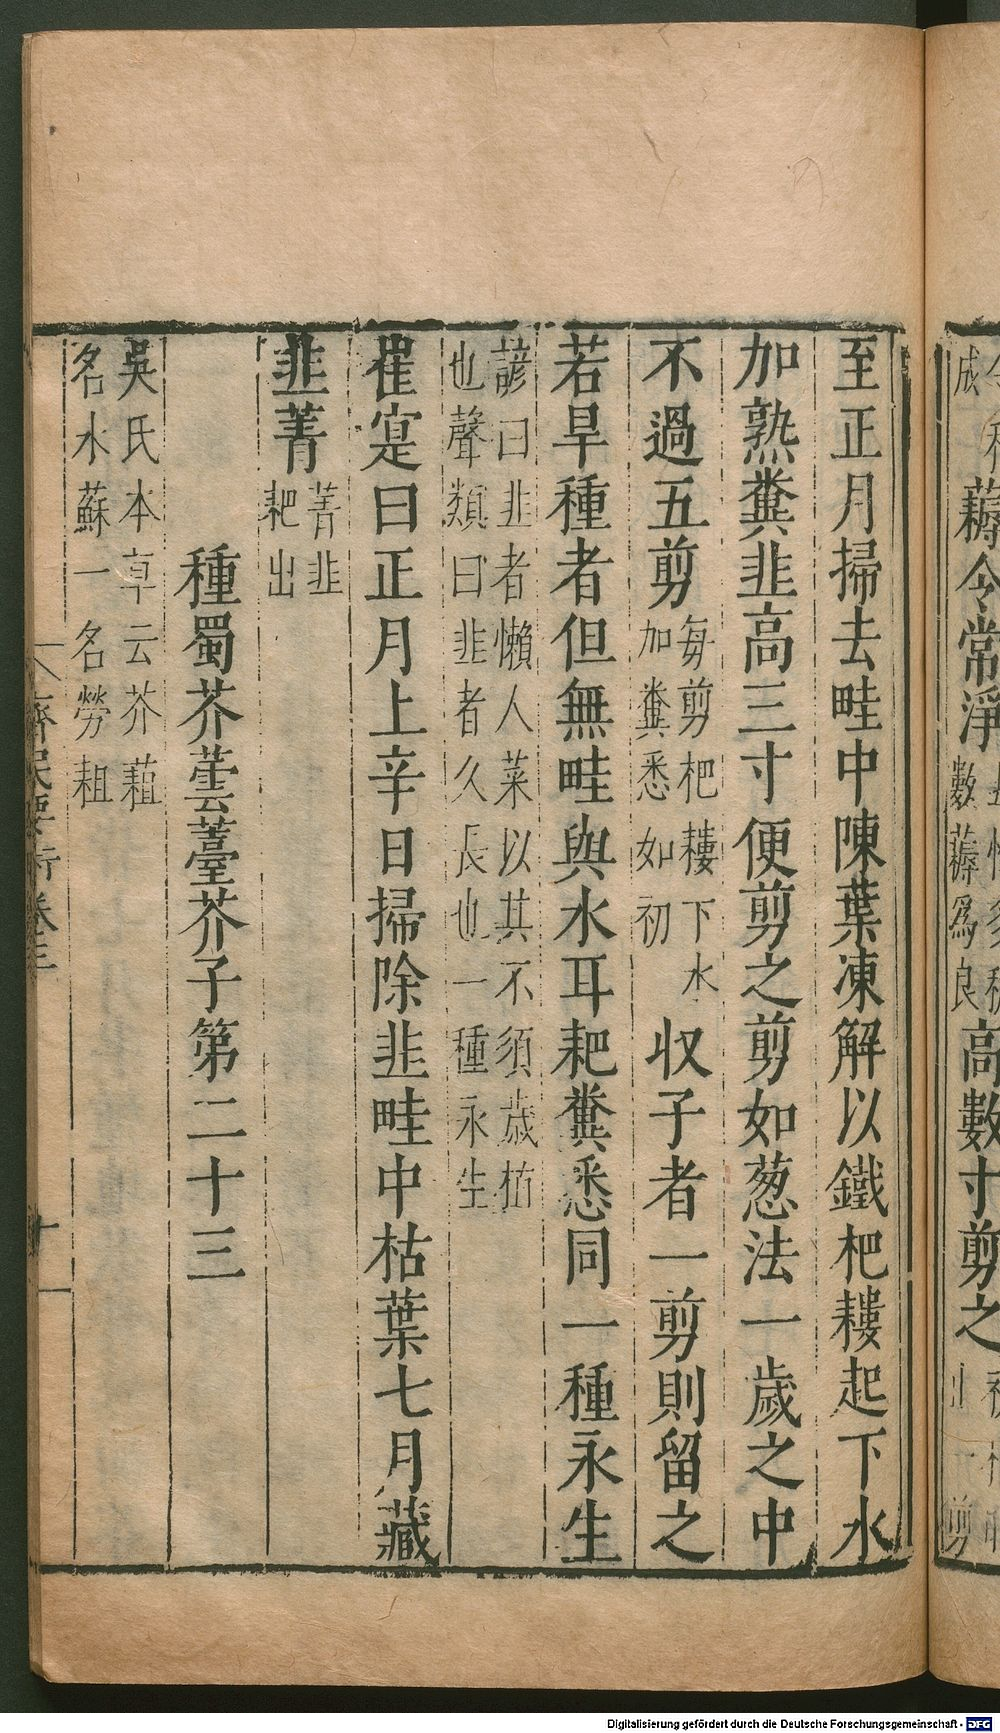 至正月掃去畦中陳葉凍解以鐵杷耬起下水
加熟糞韭高三寸便剪之剪如葱法一歲之中
不過五剪每剪杷耬下水加糞悉如初收子者一剪則留之
若旱種者但無畦與水耳耙糞悉同一種永生
諺曰韭者懶人菜以其不須歲植
也聲類曰韭者久長也一種永生
崔寔曰正月上辛日掃除韭畦中枯葉七月藏
韭菁菁韭耙出
種蜀芥蕓薹芥子第二十三
吳氏本草云芥蒩
名水蘇一名勞耝
齊民要術卷三
十一
薅令常淨
數薅爲良
高數寸剪之
Digitalisierung gefördert durch die Deutsche Forschungsgemeinschaft - DFG